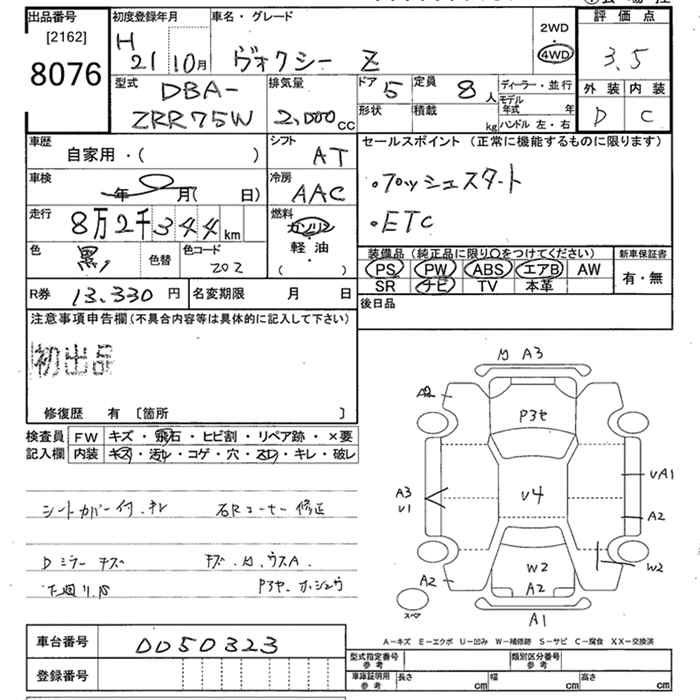 出品番号 初度登録年月 車名・グレード 2WD 評価点
[2162] H 21 10月 ヴォクシー Z 4WD 3.5
8076 型式 DBA- 排気量 ドア 5 定員 8人 ディーラー・並行 外装 内装
ZRR75W 2,000cc 形状 積載 kg モデル年式 年 D C
ハンドル 左・右
車歴 自家用・( ) シフト AT セールスポイント (正常に機能するものに限ります)
車検 年 月( 日) 冷房 AAC ・プッシュスタート
走行 8万2千344km 燃料 ガソリン ・ETC
軽・油
色 黒 色替 色コード 202 ・( )
装備品 (純正品に限り○をつけてください) 新車保証書
PS PW ABS エアB AW 有・無
R券 13,330円 名変期限 月 日 SR ナビ TV 本革
注意事項申告欄(不具合内容等は具体的に記入して下さい) 後日品
初出品
修復歴 有 [箇所 ]
検査員 FW キズ・飛石・ヒビ割・リペア跡・×要
記入欄 内装 キズ・汚れ・コゲ・穴・スレ・キレ・破レ
A3
A2
P3セ
U4
A3
U1
UA1
A2
W2
W2
A2
A2
A1
スペア
シートカバー付.
Rコーナー 修正
Dミラー キズ
A-キズ E-エクボ U-凹み W-補修跡 S-サビ C-腐食 XX-交換済
車台番号 0050323
登録番号
型式指定番号 参考 類別区分番号 参考
車庫証明用 参考 長さ cm 幅 cm 高さ cm